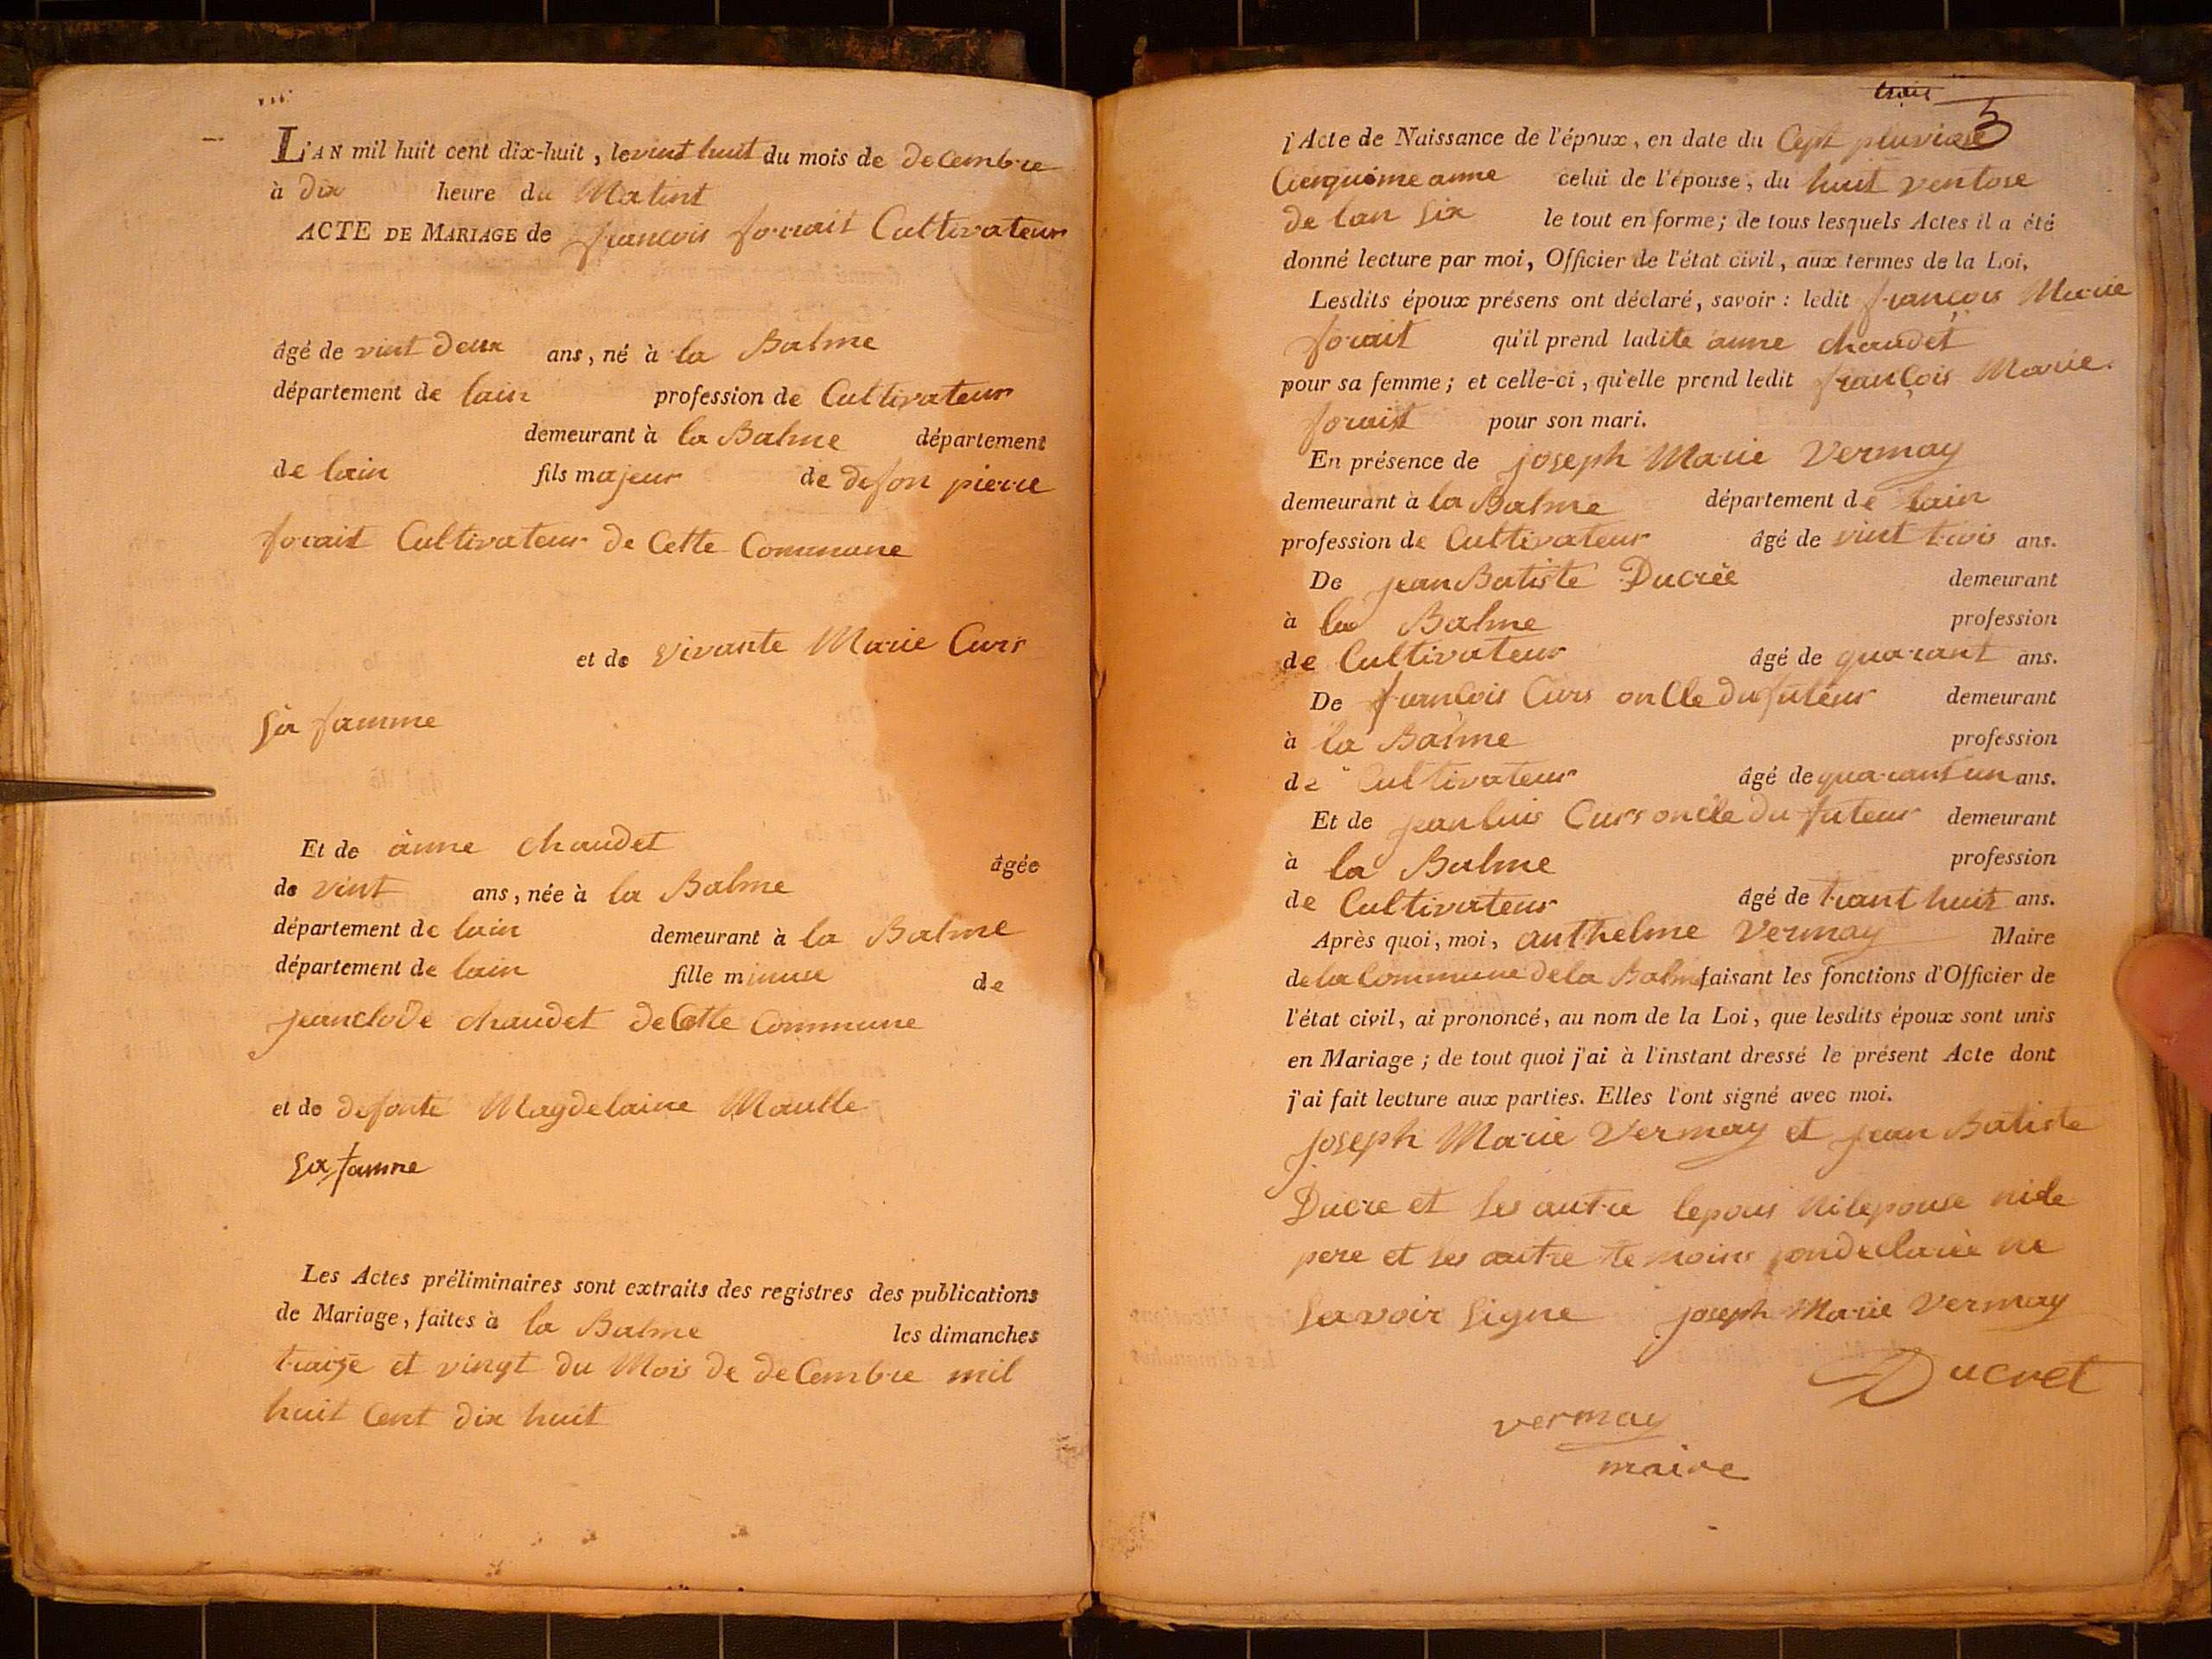 L'AN mil huit cent dix-huit, le vint huit du mois de decembre
à dix heure du Matint
ACTE DE MARIAGE de francois forrait Cultivateur
âgé de vint deux ans, né à la Balme
département de lain profession de Cultivateur
demeurant à la Balme département
de lain fils majeur de defon pierre
forait Cultivateur de Cette Commune
et de vivante Marie Curs
Sa famme
Et de anne chaudet âgée
de vint ans, née à la Balme
département de lain demeurant à la Balme
département de lain fille mineure de
jeanclode chaudet de Cette Commune
et de defonte Magdelaine Maulle
Sa famne
Les Actes préliminaires sont extraits des registres des publications
de Mariage, faites à la Balme les dimanches
traize et vingt du Mois de deCembre mil
huit Cent dix huit
trois
5
l'Acte de Naissance de l'époux, en date du Cept pluviose
Cienquieme anne celui de l'épouse, du huit ventose
de lan Six le tout en forme; de tous lesquels Actes il a été
donné lecture par moi, Officier de l'état civil, aux termes de la Loi.
Lesdits époux présens ont déclaré, savoir : ledit françois Marie
forait qu'il prend ladite anne chaudet
pour sa femme; et celle-ci, qu'elle prend ledit françois Marie
forait pour son mari.
En présence de joseph Marie Vermay
demeurant à la Balme département de lain
profession de Cultivateur âgé de vint trois ans.
De jean Batiste Ducrée demeurant
à la Balme profession
de Cultivateur âgé de quarant ans.
De francois Curs onCle du futeur demeurant
à la Balme profession
de Cultivateur âgé de quarant un ans.
Et de jean luis Curs oncle du futeur demeurant
à la Balme profession
de Cultivateur âgé de trant huit ans.
Après quoi, moi, anthelme Vermay Maire
de la Commune de la Balme faisant les fonctions d'Officier de
l'état civil, ai prononcé, au nom de la Loi, que lesdits époux sont unis
en Mariage; de tout quoi j'ai à l'instant dressé le présent Acte dont
j'ai fait lecture aux parties. Elles l'ont signé avec moi.
joseph Marie Vermay et jean Batiste
Ducre et les autre lepous ni lepouse ni le
pere et les autre temoins on declarée ne
Savoir Signe joseph Marie Vermay
Ducret
vermay
maire